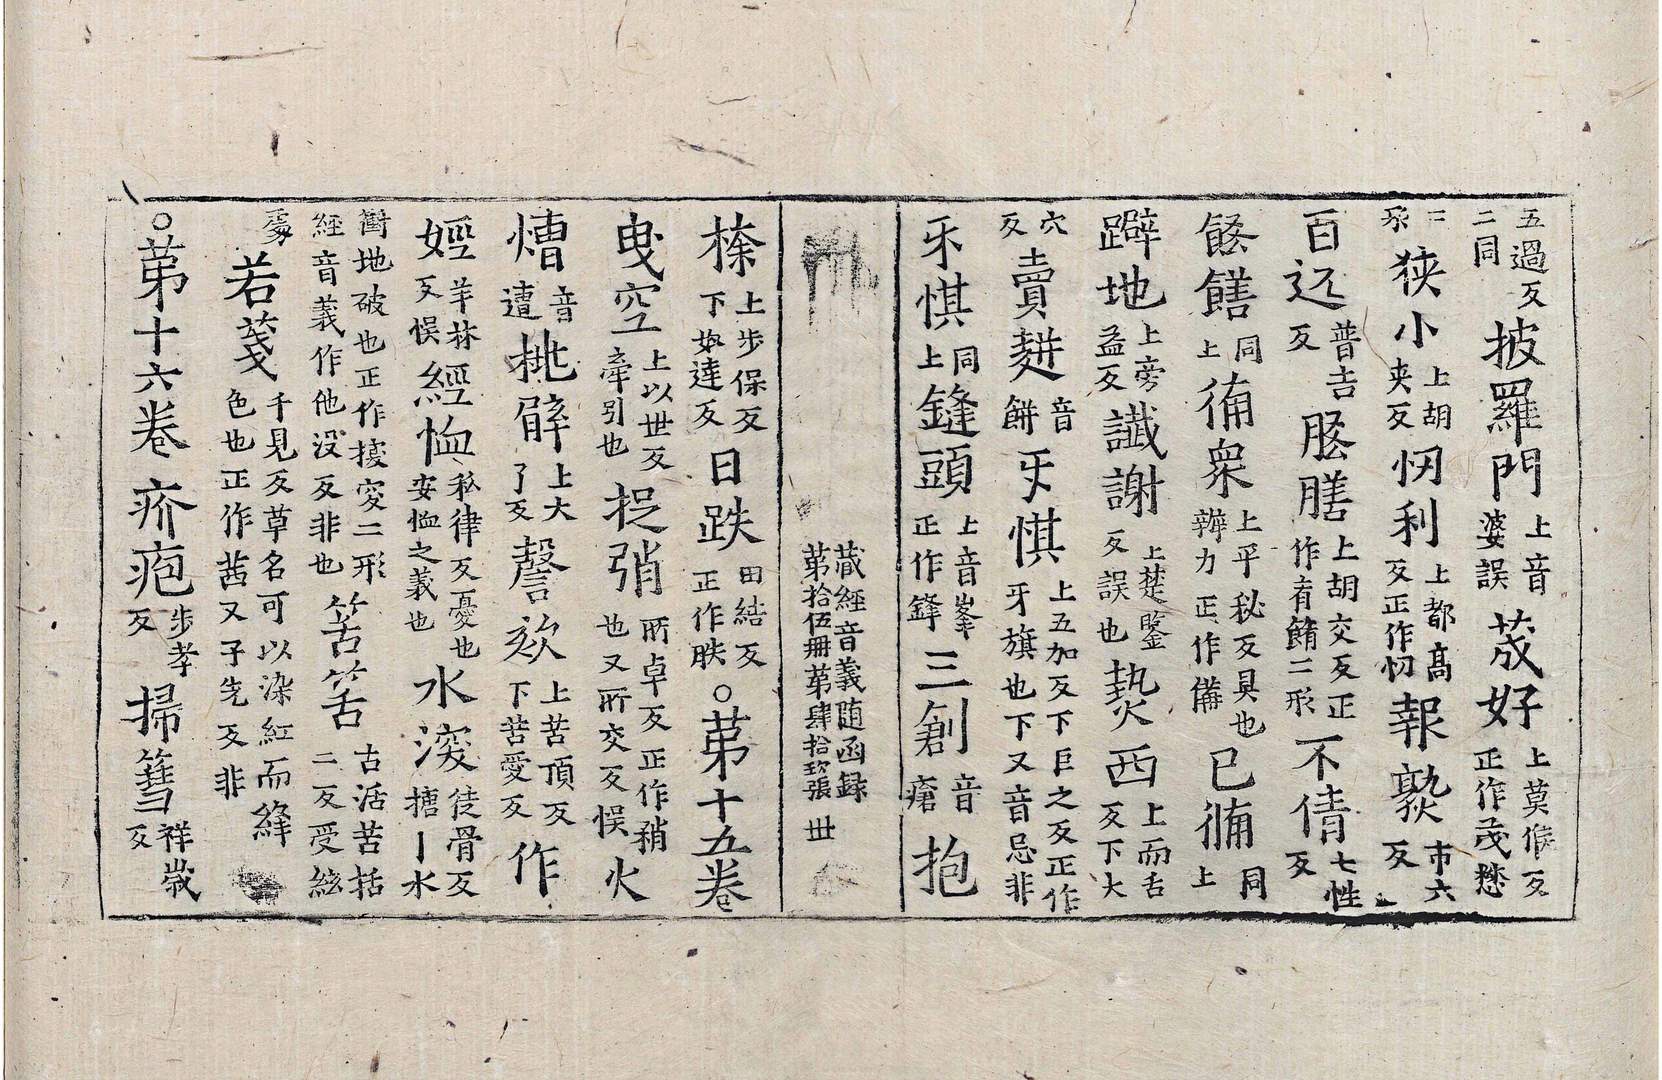 五過反二同披羅門上音婆誤茂好上莫候反正作茂懋
二泵狹小上胡夾反忉利上都髙反正作忉報㷼市六反
百迉普吉反𦞦膳上胡交反正作有餚二形不倩七性反
餚饍同上俻衆上平秘反具也辦力正作備已俻同上
躃地上旁益反讖謝上楚鑒反誤也𤍠西上而舌反下大
穴反賣麪音餅牙惎上五加反下巨之反正作牙旗也下又音忌非
牙惎同上鏠頭上音峯正作鋒三創音瘡抱
藏經音義随函録
第拾伍冊第肆拾玖張 丗
㮈上步保反下奴達反日跌田結反正作昳○第十五卷
曳空上以世反牽引也捉弰所卓反正作矟也又所交反悮火
熷音遭桃擗上大了反謦欬上苦頂反下苦愛反作
婬羊林反悮經恤私律反憂也安恤之義也水湥徒骨反搪丨水
衝地破也正作揬突二形經音義作他没反非也筈筈古活苦括二反受絃
𠁅若茷千見反草名可以染紅而絳色也正作茜又子先反非
○第十六卷疥疱步孝反掃篲祥歲反